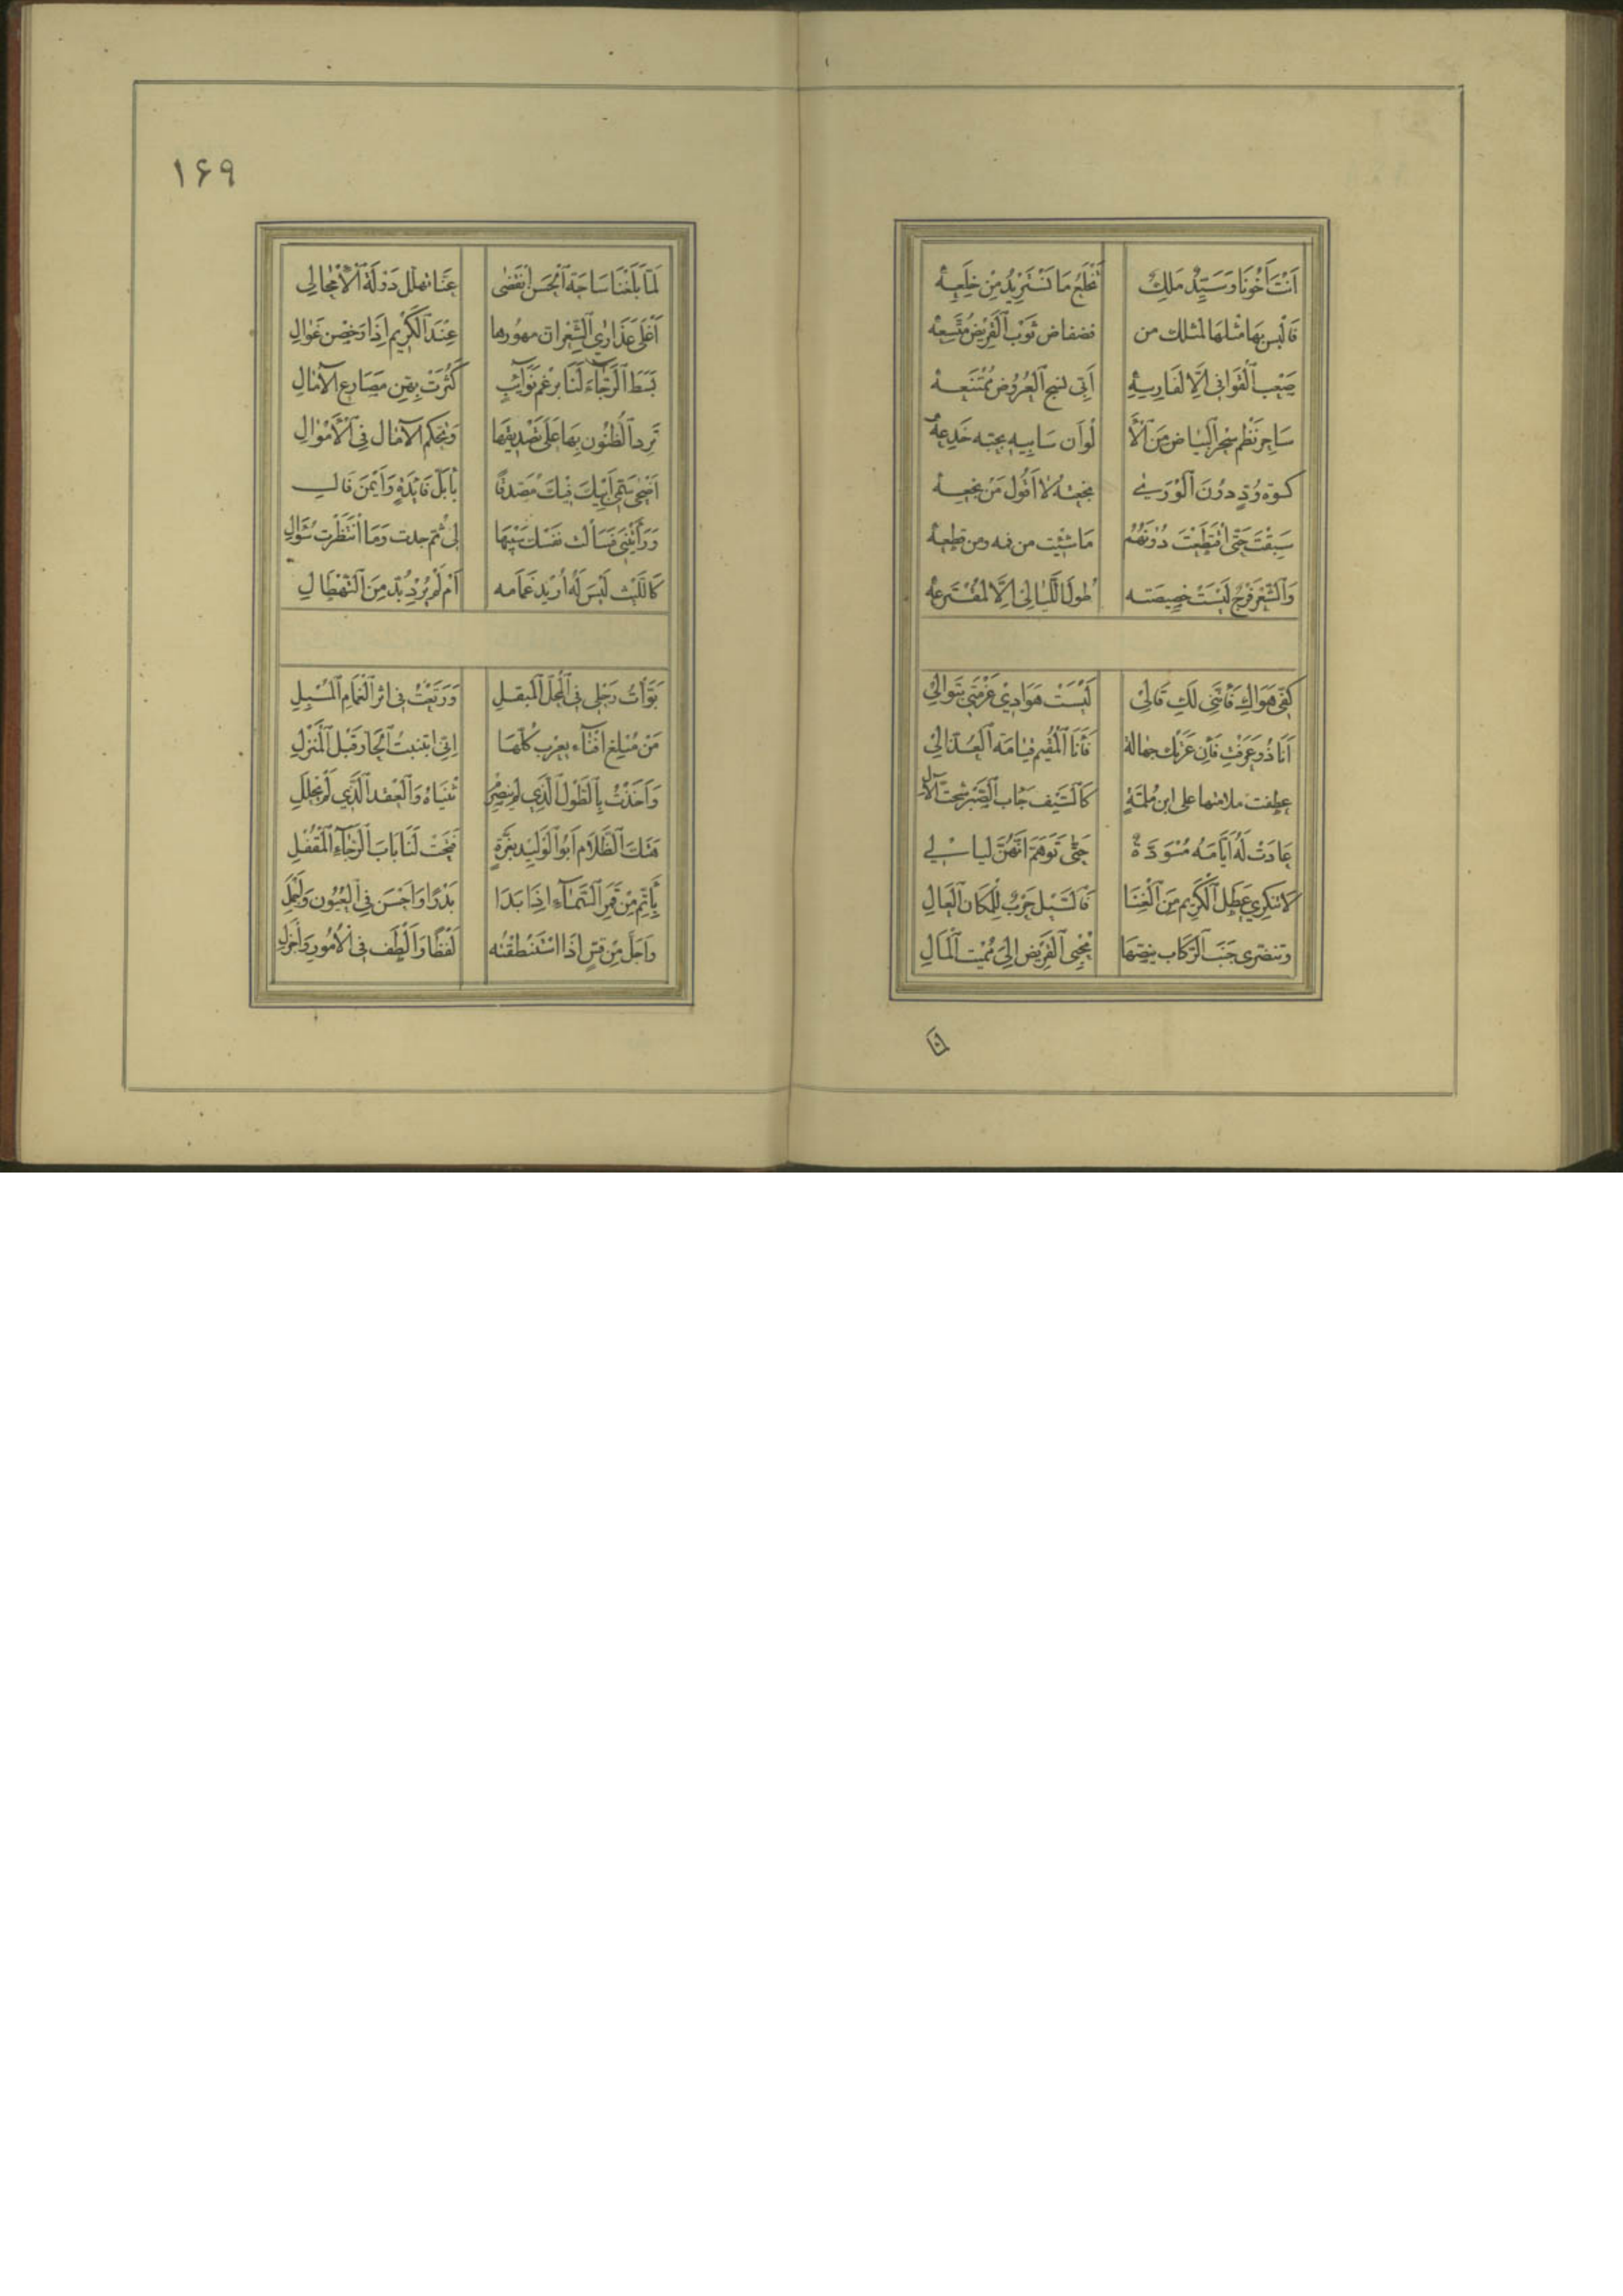 اَنْتَ اَخُونَا وَسَيِّدٌ مَلِكٌ نَخْلَعُ مَا نَسْتَزِيدُ مِنْ خِلَعِهْ
فَالْبس بِهَا مثلها لمثلك من فضفاض ثَوْبِ القَرِيضِ مُتَّسِعِهْ
صَعْبِ القَوافى اِلّا لِفَارِسِهِ اَبِى نسج العَرُوضِ مُمْتَنِعِهْ
سَاحِر نَظم سِحْر البَياض مِنَ الْأَ لْوَان سَايِبِهِ خَدِعِهْ
كسوة وُدّ دُونَ الْوَرى
سَبَقْتَ حَتّى اقْتَطَعْتَ دُونَهُمُ مَا شِئْت من فمه ومن قطعه
وَالشِّعْر فَرْجٌ لَيْسَتْ خَصِيصَته طُولَ اللَّيَالِى اِلَّا لِمُفْتَرِعِهْ
كُفّى هَوَاكِ فَاِنَّنِى لَكِ قَالِى لَيْسَتْ هَوَادِى عَزْمَتِى بِتَوَالِى
اَنَا ذُو عَرَفْتِ فَاِن عَرَتْك جهالة فَأَنَا الْمُقِيم قيامَة العُذّالِى
عطفت ملامتها على ابن مُلِمَّةٍ كَالسَّيْف جاب الصَّبْر شخت الآل
عَادَتْ لَهُ اَيّامُهُ مُسْوَدَّةً حَتّى تَوَهَّمَ اَنَّهُنَّ ليالى
لَا تنكرِى عَطَلَ الكَرِيم مِنَ الْغِنَا فَالسَّيْل حَرْبٌ لِلْمَكَان العَالِ
وتنظرى خبب الرِّكَاب ينصّها مُحْيِى القَرِيض اِلى مُمِيت الْمَالِ
١۶٩
لَمّا بَلَغْنَا سَاحَةَ الْحَسَنِ انْقَضٰى عَنّا تملّك دَوْلَة الْأَمْحَالِى
اَغْلَى عَذَارِى الشِّعْر ان مهورها عِنْدَ الكَرِيم اِذَا رَخُصن غَوالِ
بَسَطَ الرَّجَآءَ لَنَا بِرغم نَوَآئِبٍ كَثُرَتْ بِهِنّ مَصَارِع الآمَالِ
تَرِد الظُّنُون بِهَا عَلى تَصْدِيقِهَا وَيُحكم الآمَال فِى الْأَمْوَالِ
اَضْحى سَمِىّ اَبِيكَ فِيكَ مُصَدّقًا بأجَلّ فَائِدَةٍ وَاَيْمَن فَالِ
وَرَأَيْتَنِى فَسَأَلْتَ نَفْسَك سَيْبَهَا لِى ثُمّ جدت وَمَا انْتَظَرْت سُؤالِ
كَالْغَيْث لَيْسَ لَهُ اُرِيد غَمَامه اَمْ لَمْ يُرِدْ بُدّ مِنَ التَّهْطَالِ
بَوَّأْتُ رَحْلِى فِى الْمحل الْمُبقلِ وَرَتَعْتُ فى اثر الْغَمَام الْمُسْبِلِ
مَنْ مُبْلِغ اَفْنَآءَ يعرب كُلّهَا اِنّى ابتنيتُ الجَار قَبْل الْمَنْزِلِ
وَاَخَذْتُ بِالطَّوْل الَّذِى لم ينصرم ثنياهُ وَالْعقد الَّذِى لَمْ يحلل
هَتَكَ الظَّلَام اَبُو الوَلِيد بِغُرّةٍ فتحت لَنَا بَابَ الرَّجَآءِ الْمُقْفَلِ
بِأَتَمّ مِنْ قَمَر السَّمَآءِ اِذَا بَدَا بَدْرًا وَاَحْسَن فِى الْعُيُون وَاَجْمَلِ
وَاَجَلّ مِن قُسٍّ اِذَا اسْتَنْطَقْتُه لَفْظًا وَاَلْطَف فى الْأُمُور وَاَجْزَل